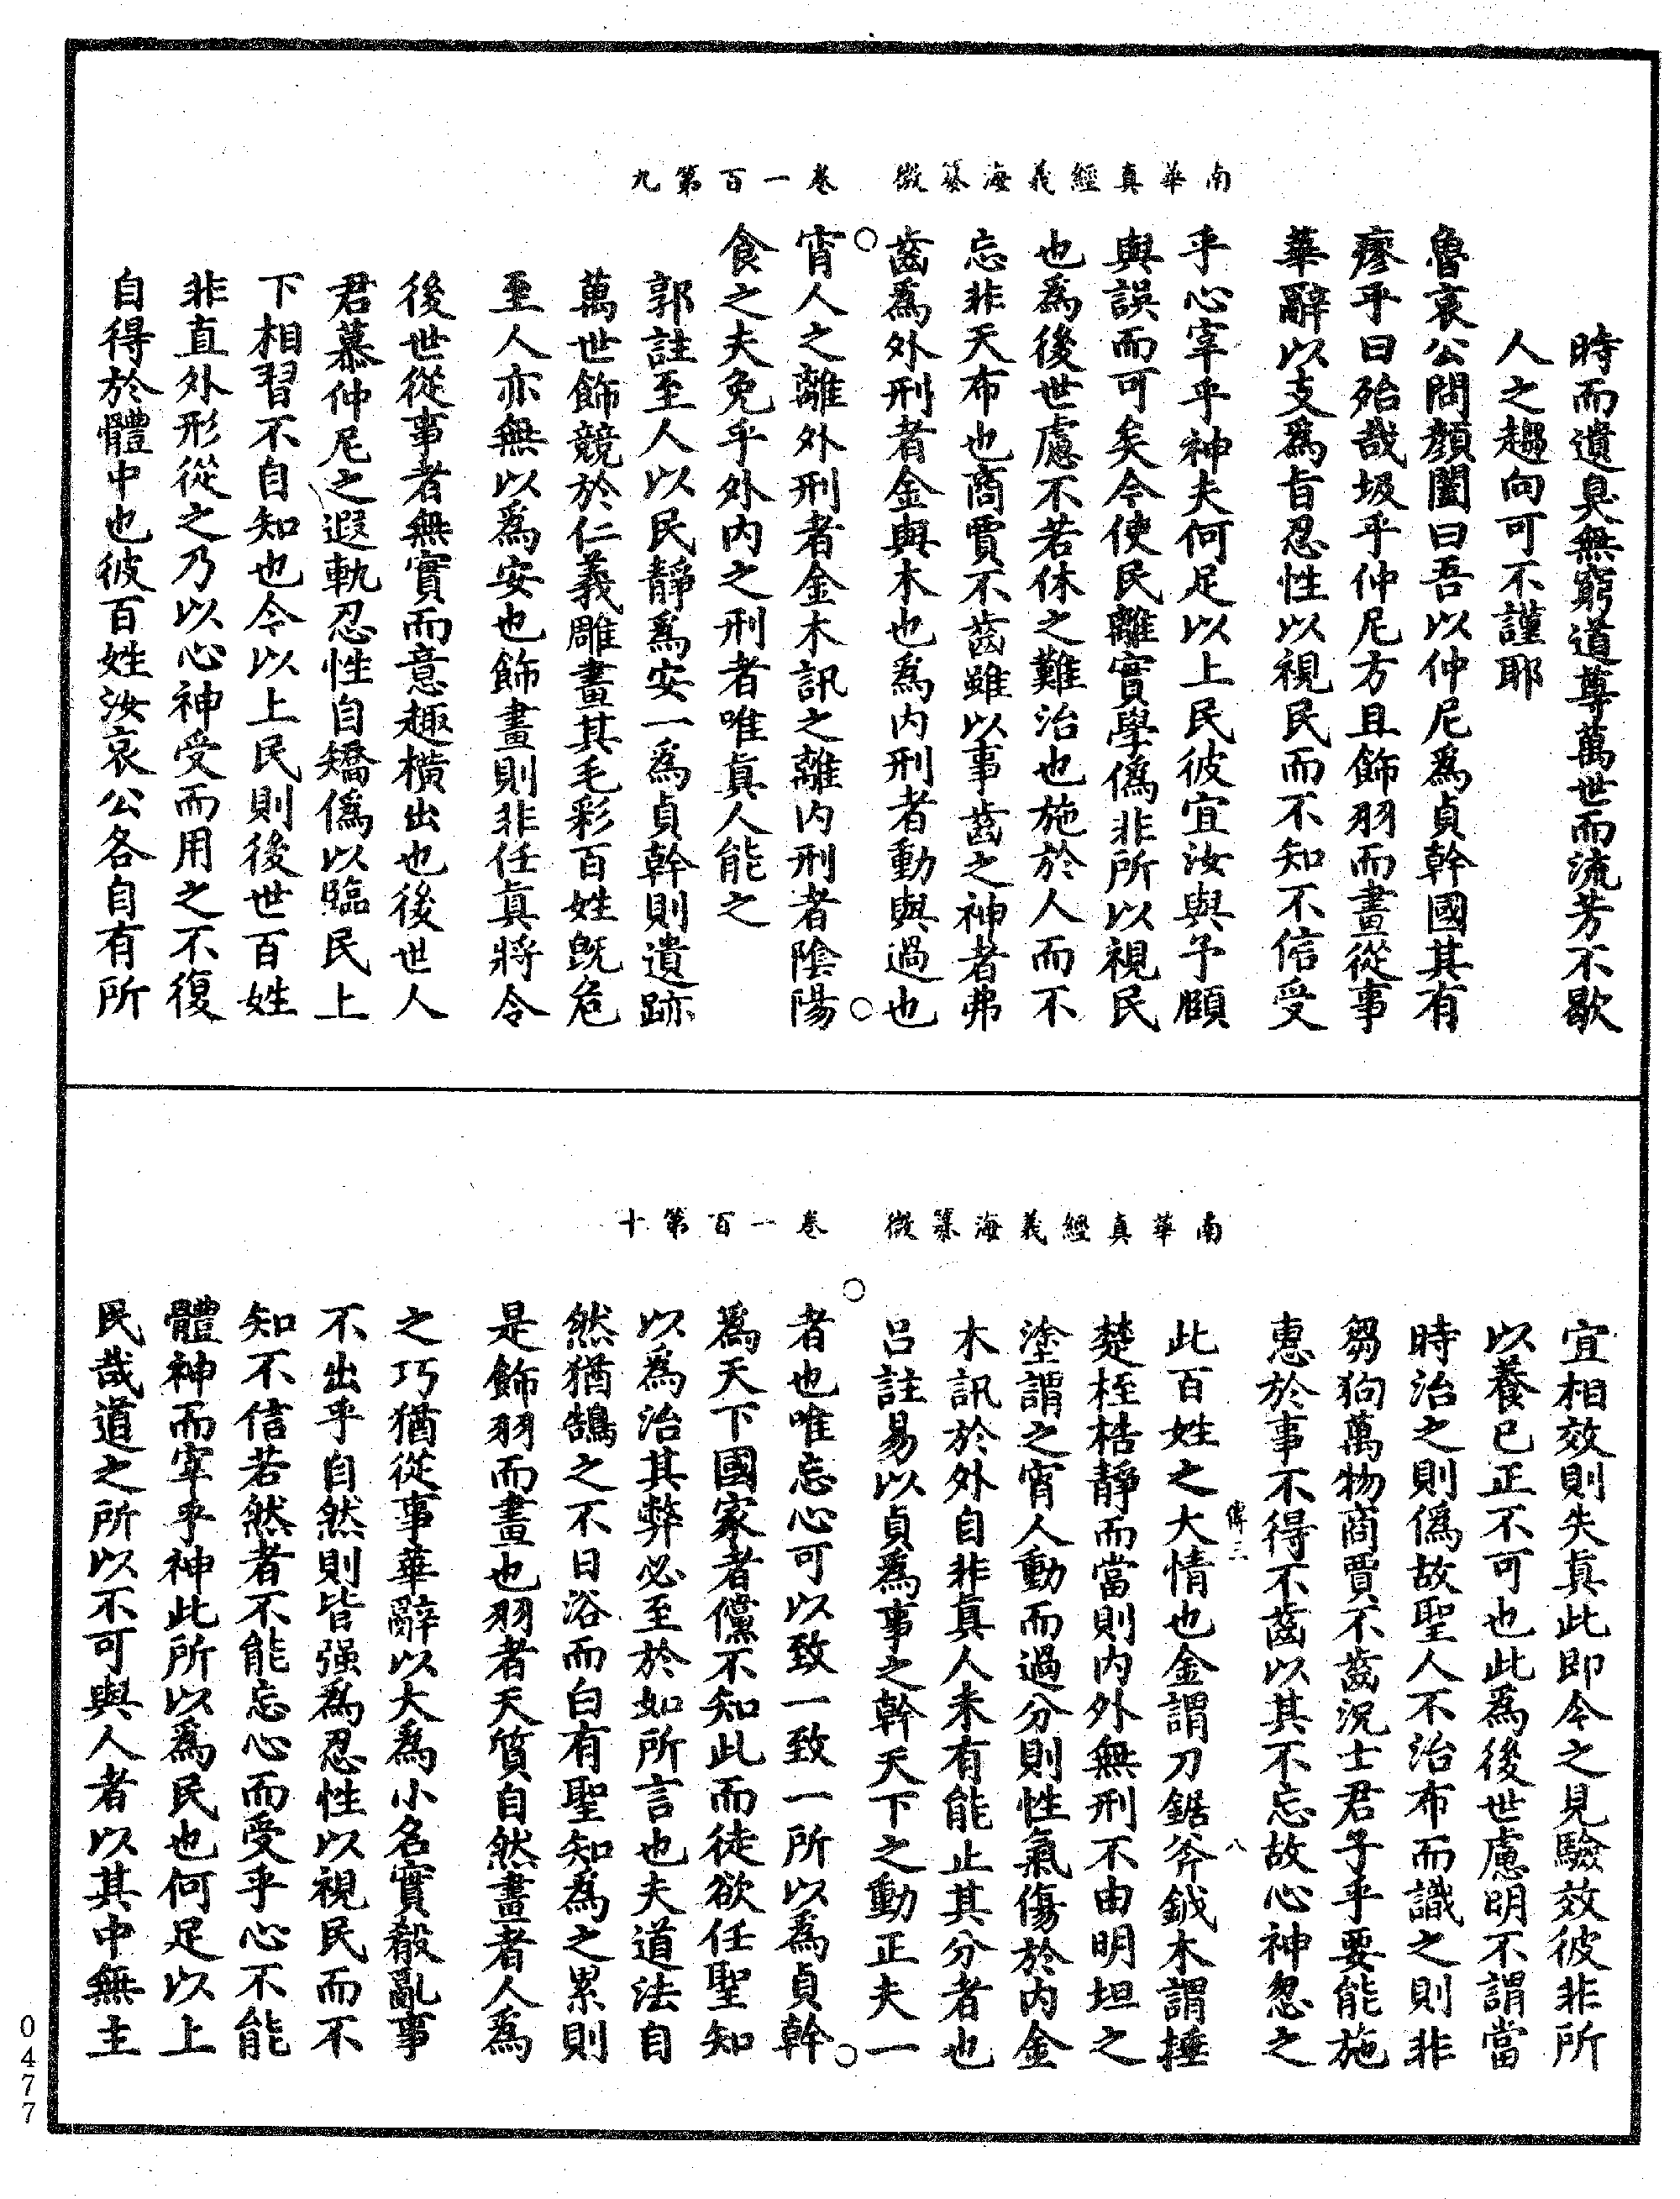 南華真經義海纂微　卷一百第九
時而遺臭無窮道尊萬世而流芳不歇
人之趨向可不謹耶
魯哀公問顏闔曰吾以仲尼爲貞幹國其有
瘳乎曰殆哉圾乎仲尼方且飾羽而畫從事
華辭以支爲旨忍性以視民而不知不信受
乎心宰乎神夫何足以上民彼宜汝與予頤
與誤而可矣今使民離實學僞非所以視民
也爲後世慮不若休之難治也施於人而不
忘非天布也商賈不齒雖以事齒之神者弗
齒爲外刑者金與木也爲内刑者動與過也
宵人之離外刑者金木訊之離内刑者陰陽
食之夫免乎外内之刑者唯眞人能之
郭註至人以民靜爲安一爲貞幹則遺跡
萬世飾競於仁義雕畫其毛彩百姓旣危
至人亦無以爲安也飾畫則非任眞將令
後世從事者無實而意趣横出也後世人
君慕仲尼之遐軌忍性自矯僞以臨民上
下相習不自知也今以上民則後世百姓
非直外形從之乃以心神受而用之不復
自得於體中也彼百姓汝哀公各自有所
南華真經義海纂微　卷一百第十
宜相效則失眞此即今之見驗效彼非所
以養已正不可也此爲後世慮明不謂當
時治之則僞故聖人不治布而識之則非
芻狗萬物商賈不齒況士君子乎要能施
惠於事不得不齒以其不忘故心神忽之
傳三　八
此百姓之大情也金謂刀鋸斧鉞木謂捶
楚桎梏靜而當則内外無刑不由明坦之
塗謂之宵人動而過分則性氣傷於内金
木訊於外自非眞人未有能止其分者也
呂註易以貞爲事之幹天下之動正夫一
者也唯忘心可以致一致一所以爲貞幹
爲天下國家者儻不知此而徒欲任聖知
以爲治其弊必至於如所言也夫道法自
然猶鵠之不日浴而白有聖知爲之累則
是飾羽而畫也羽者天質自然畫者人爲
之巧猶從事華辭以大爲小名實殽亂事
不出乎自然則皆强爲忍性以視民而不
知不信若然者不能忘心而受乎心不能
體神而宰乎神此所以爲民也何足以上
民哉道之所以不可與人者以其中無主
0477